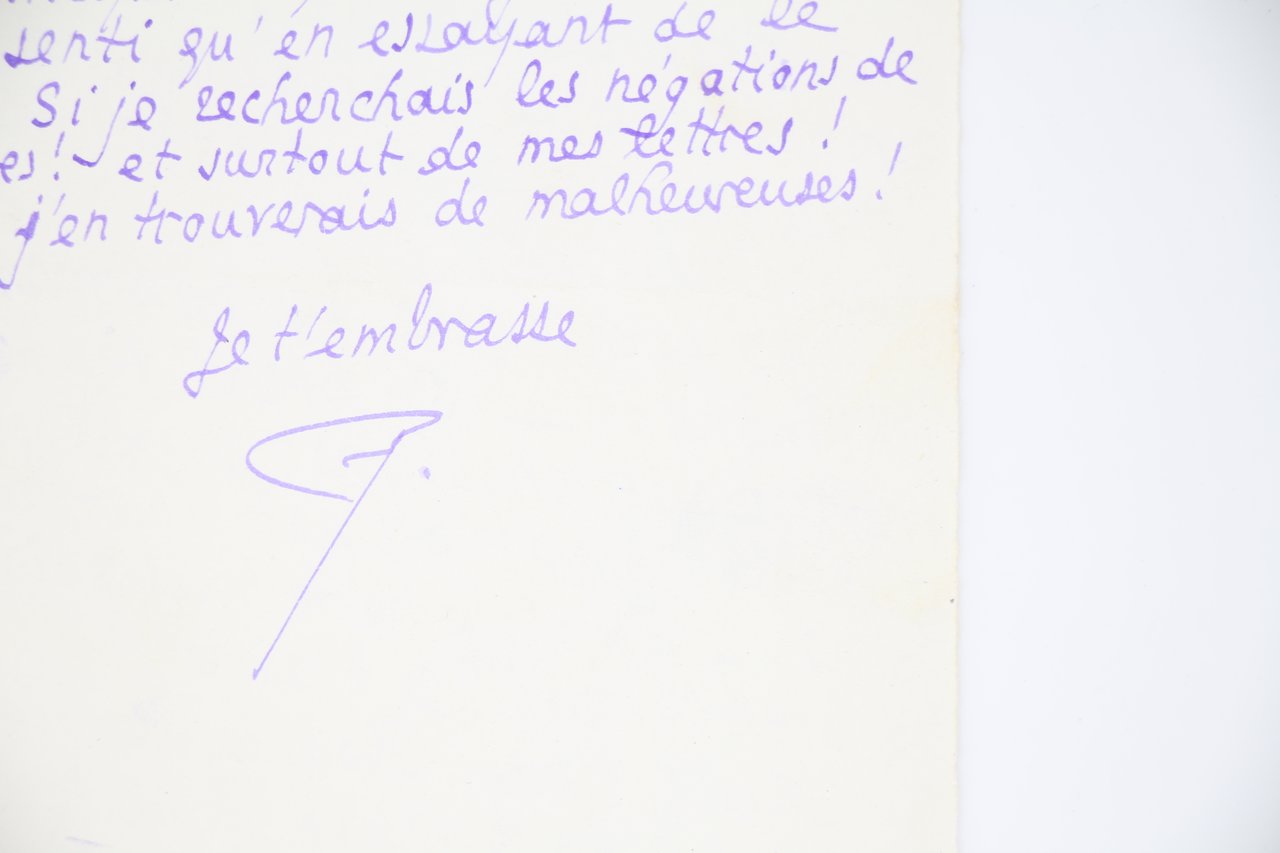 senti qu'en essayant de le
Si je recherchais les négations de
es! et surtout de mes lettres !
j'en trouverais de malheureuses !
Je t'embrasse